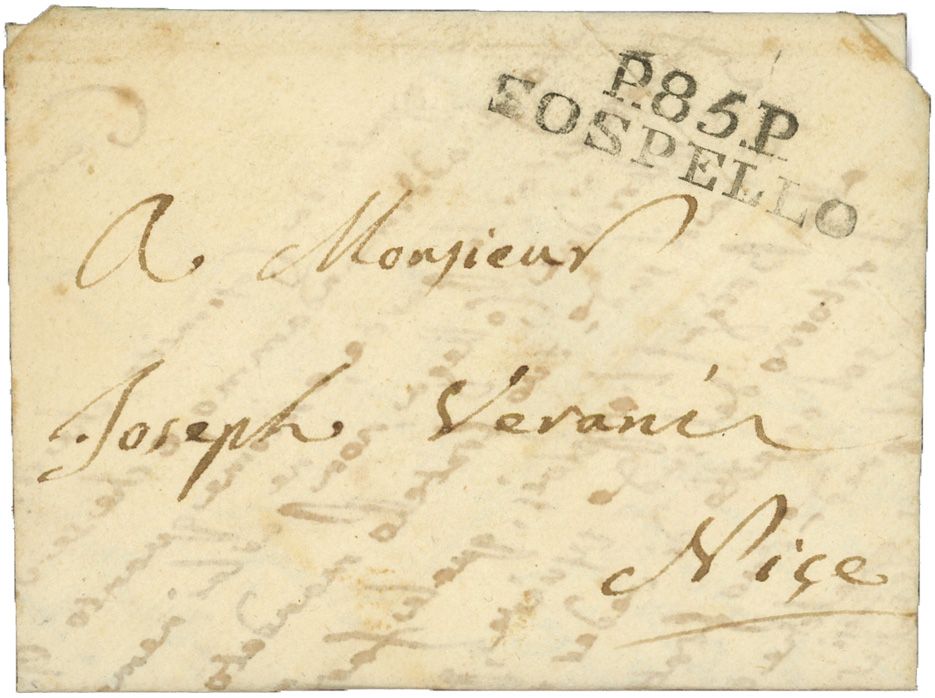 P.85.P
SOSPELLO
A Monsieur
Joseph Verani
Niçe